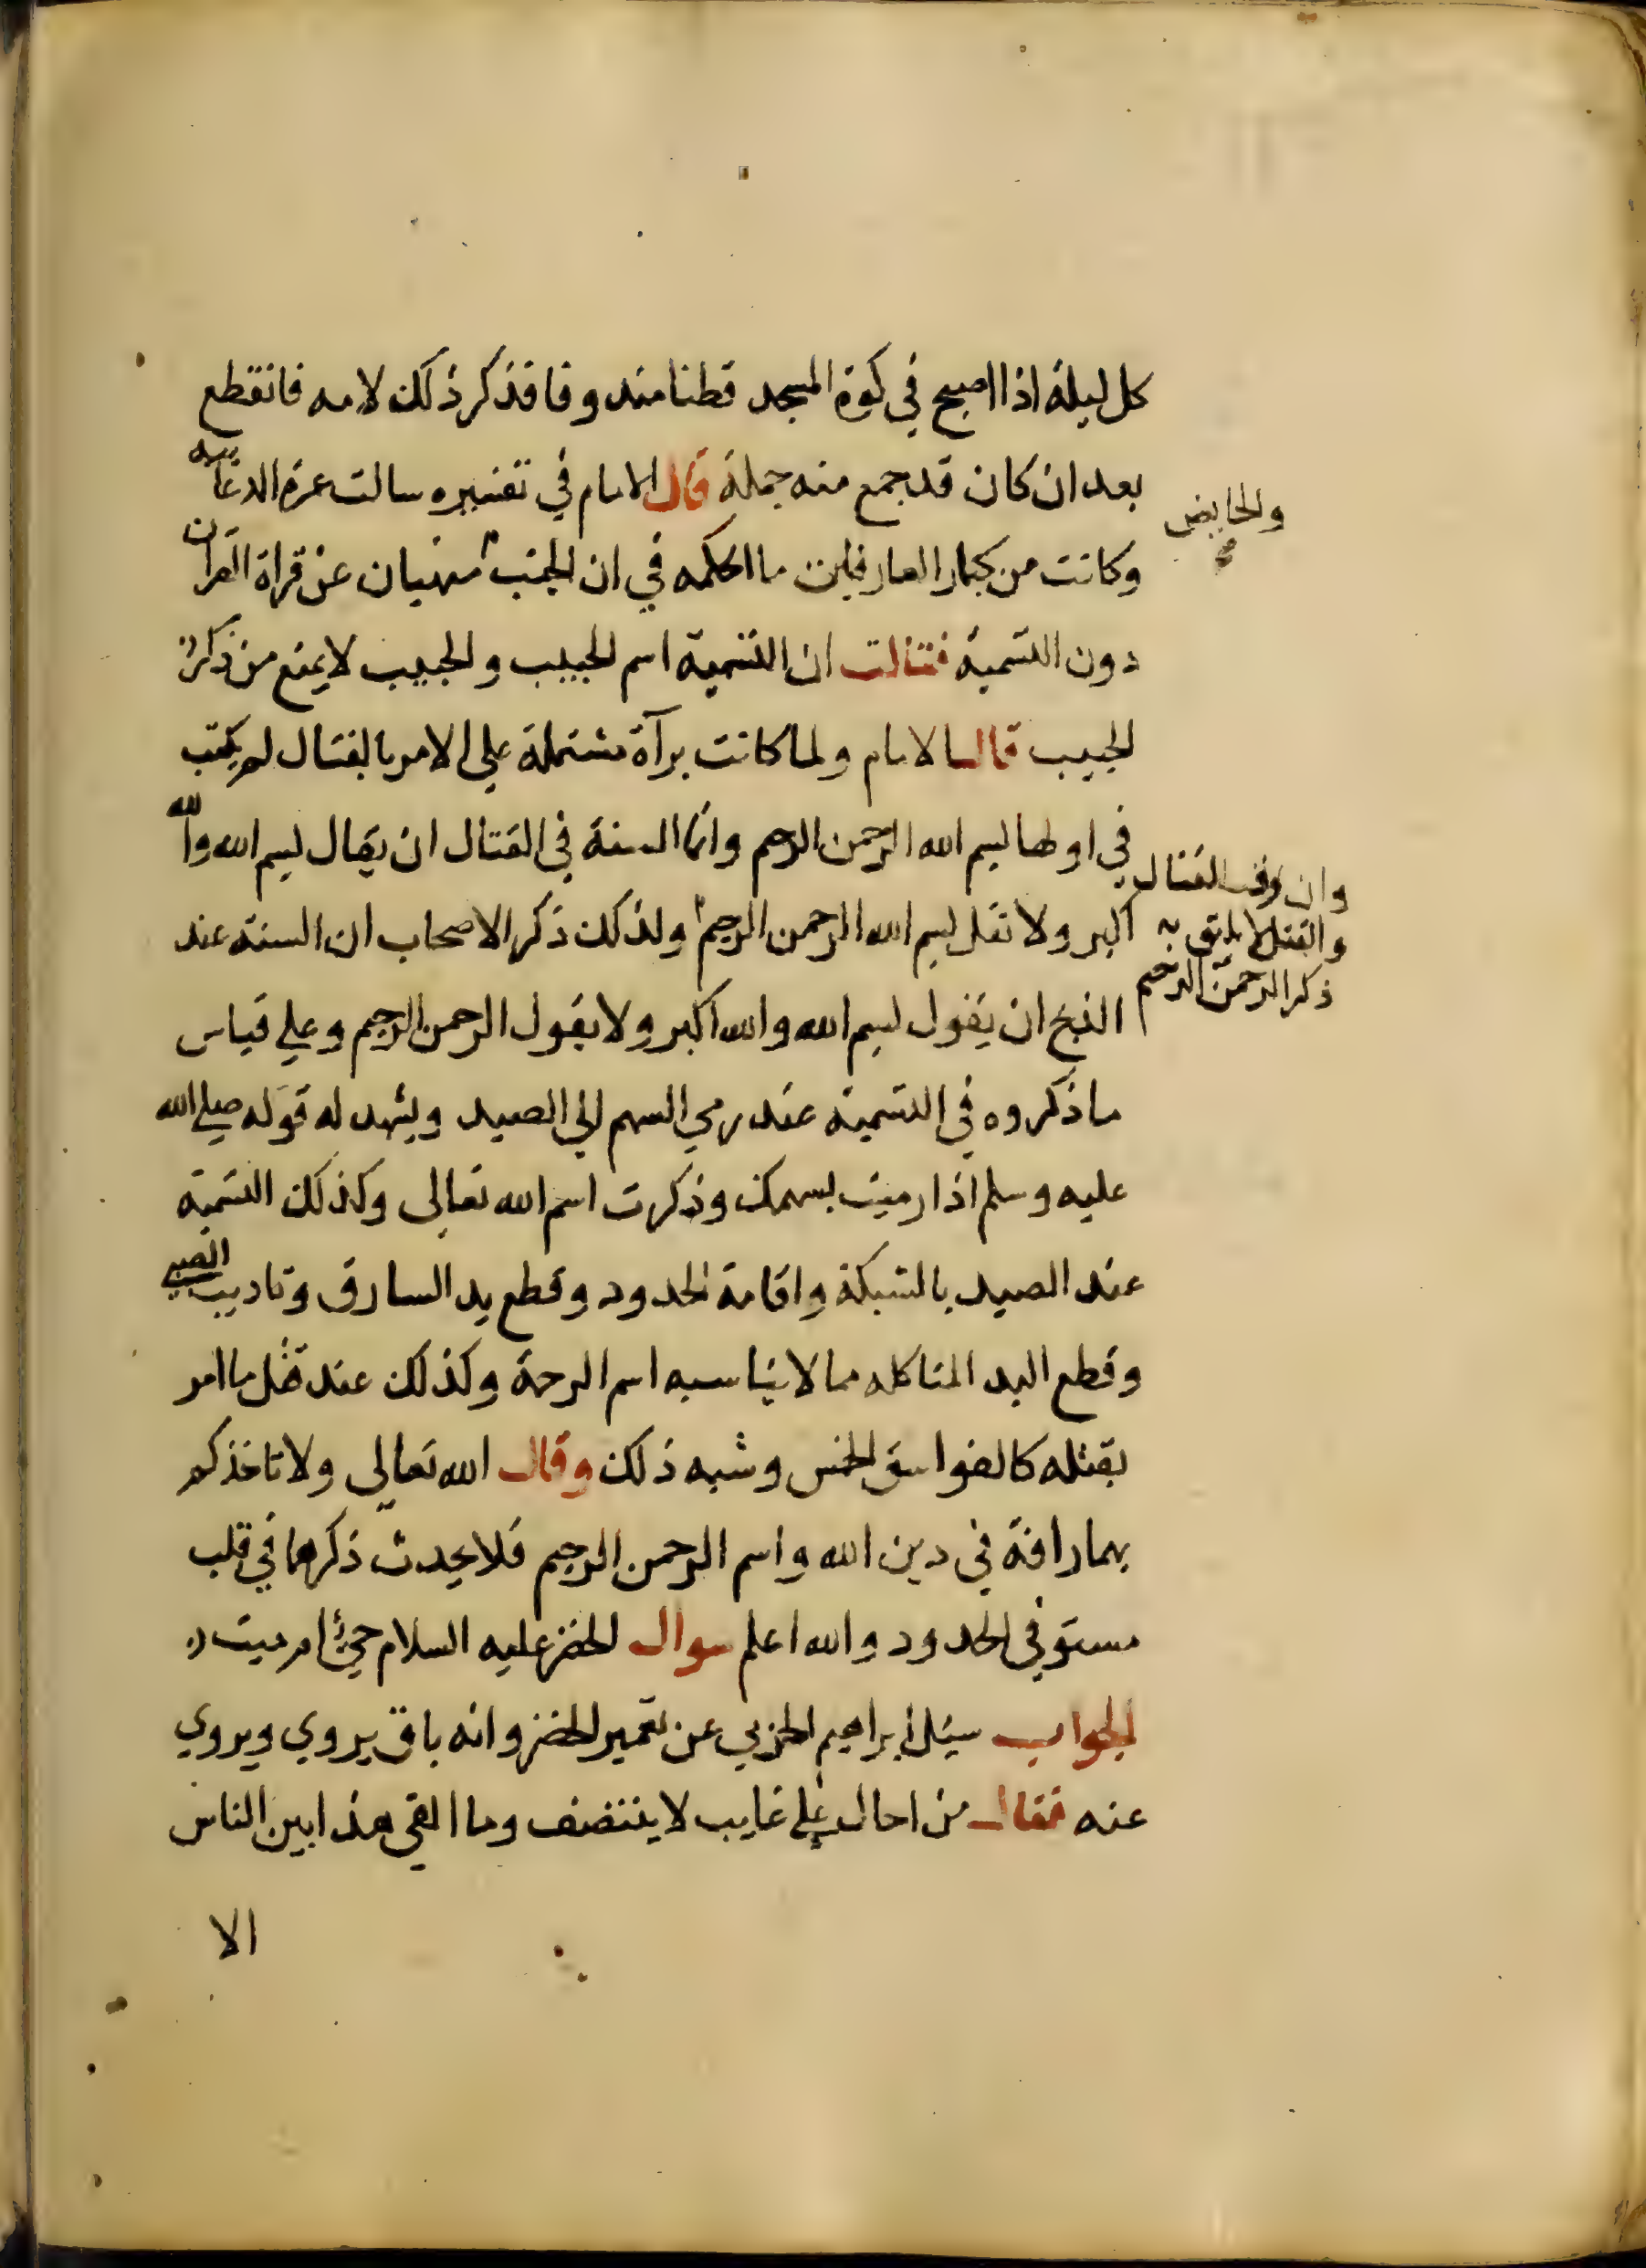 كل ليلة اذا اصبح في كوة المسجد قطنا مندوفا فذكر ذلك لامه فانقطع
بعد ان كان قد جمع منه جملة قال الامام في تفسيره سالت عمرة
وكانت من كبار العارفين ما الحكمه في ان الجنب منهيان عن قراة القران
والحايض صح
دون التسمية فقالت ان التسمية اسم الحبيب والحبيب لا يمنع من ذكر
الحبيب قال الامام ولما كانت برآة مشتملة علي الامر بالقتال لم يكتب
في اولها بسم الله الرحمن الرحيم وانما السنة في القتال ان يقال بسم الله والله
اكبر ولا تقل بسم الله الرحمن الرحيم ولذلك ذكر الاصحاب ان السنة عند
وان وقت القتال
والقتل لا يليق به
ذكر الرحمن الرحيم
الذبح ان يقول بسم الله والله اكبر ولا يقول الرحمن الرحيم وعلي قياس
ما ذكروه في التسمية عند رمي السهم الي الصيد ويشهد له قوله صلي الله
عليه وسلم اذا رميت بسهمك وذكرت اسم الله تعالى وكذلك التسمية
عند الصيد بالشبكة واقامة الحدود وقطع يد السارق وتاديب الصبي
وقطع اليد المتاكله مما لا يناسبه اسم الرحمة وكذلك عند قتل ما امر
بقتله كالفواسق الخمس وشبه ذلك وقال الله تعالي ولا تاخذكم
بهما رافة في دين الله واسم الرحمن الرحيم فلا يحدث ذكرهما في قلب
مستوفي الحدود والله اعلم سوال الخضر عليه السلام حي ام ميت
الجواب سئل ابراهيم الحربي عن تعمير الخضر وانه باق يروي ويروي
عنه فقال من احال علي غايب لا ينتصف وما القي هذا بين الناس
الا